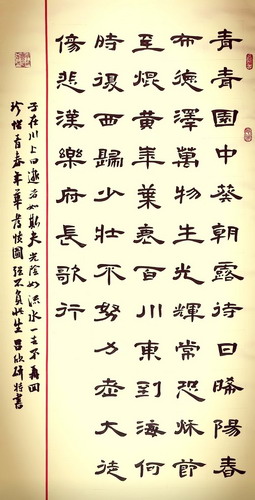 青青園中葵朝露待日晞陽春
布德澤萬物生光輝常恐秋節
至焜黃華葉衰百川東到海何
時復西歸少壯不努力老大徒
傷悲漢樂府長歌行
子在川上曰逝者如斯夫光陰如洪水一去不再回
珍惜青春年華發憤圖強不負此生呂欣研特書